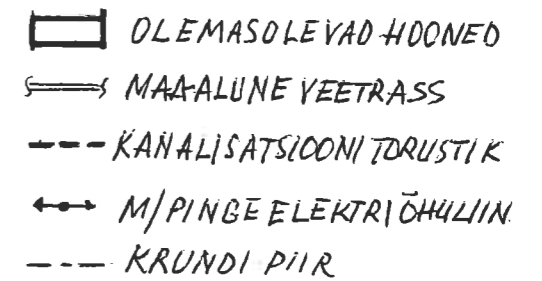 OLEMASOLEVAD HOONED
MAA-ALUNE VEETRASS
KANALISATSIOONI TORUSTIK
M/PINGE ELEKTRI ÕHULIIN
KRUNDI PIIR